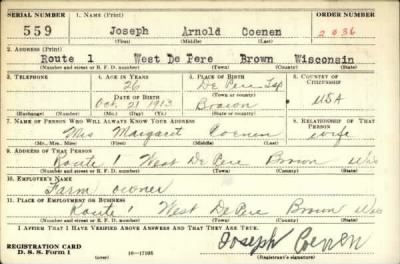 SERIAL NUMBER 1. NAME (Print) ORDER NUMBER
559 Joseph Arnold Coenen 2036
(First) (Middle) (Last)
2. ADDRESS (Print)
Route 1 West De Pere Brown Wisconsin
(Number and street or R. F. D. number) (Town) (County) (State)
3. TELEPHONE 4. AGE IN YEARS 5. PLACE OF BIRTH 6. COUNTRY OF CITIZENSHIP
26 De Pere Tsp
DATE OF BIRTH (Town or county)
Oct. 21 1913 Brown USA
(Exchange) (Number) (Mo.) (Day) (Yr.) (State or country)
7. NAME OF PERSON WHO WILL ALWAYS KNOW YOUR ADDRESS 8. RELATIONSHIP OF THAT PERSON
Mrs Margaret Coenen wife
(Mr., Mrs., Miss) (First) (Middle) (Last)
9. ADDRESS OF THAT PERSON
Route 1 West De Pere Brown Wis
(Number and street or R. F. D. number) (Town) (County) (State)
10. EMPLOYER'S NAME
Farm owner
11. PLACE OF EMPLOYMENT OR BUSINESS
Route 1 West De Pere Brown Wis
(Number and street or R. F. D. number) (Town) (County) (State)
I AFFIRM THAT I HAVE VERIFIED ABOVE ANSWERS AND THAT THEY ARE TRUE.
REGISTRATION CARD Joseph Coenen
D. S. S. Form 1 (over) 16—17105 (Registrant's signature)